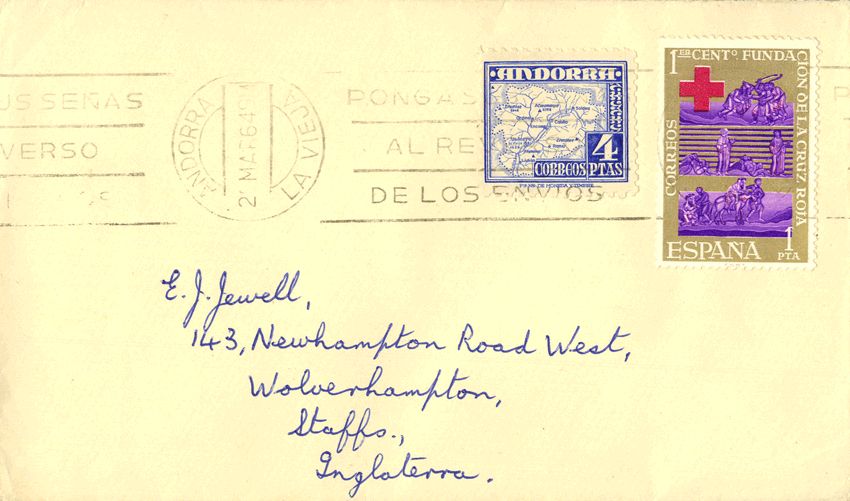 US SEÑAS
VERSO
ANDORRA LA VIEJA
2 MAR 64
PONGA S
AL RE
DE LOS ENVIOS
ANDORRA
4
CORREOS PTAS
1 ER CENT.º FUNDACIÓN DE LA CRUZ ROJA
CORREOS
ESPAÑA 1 PTA
E. J. Jewell,
143, Newhampton Road West,
Wolverhampton,
Staffs.,
Inglaterra.